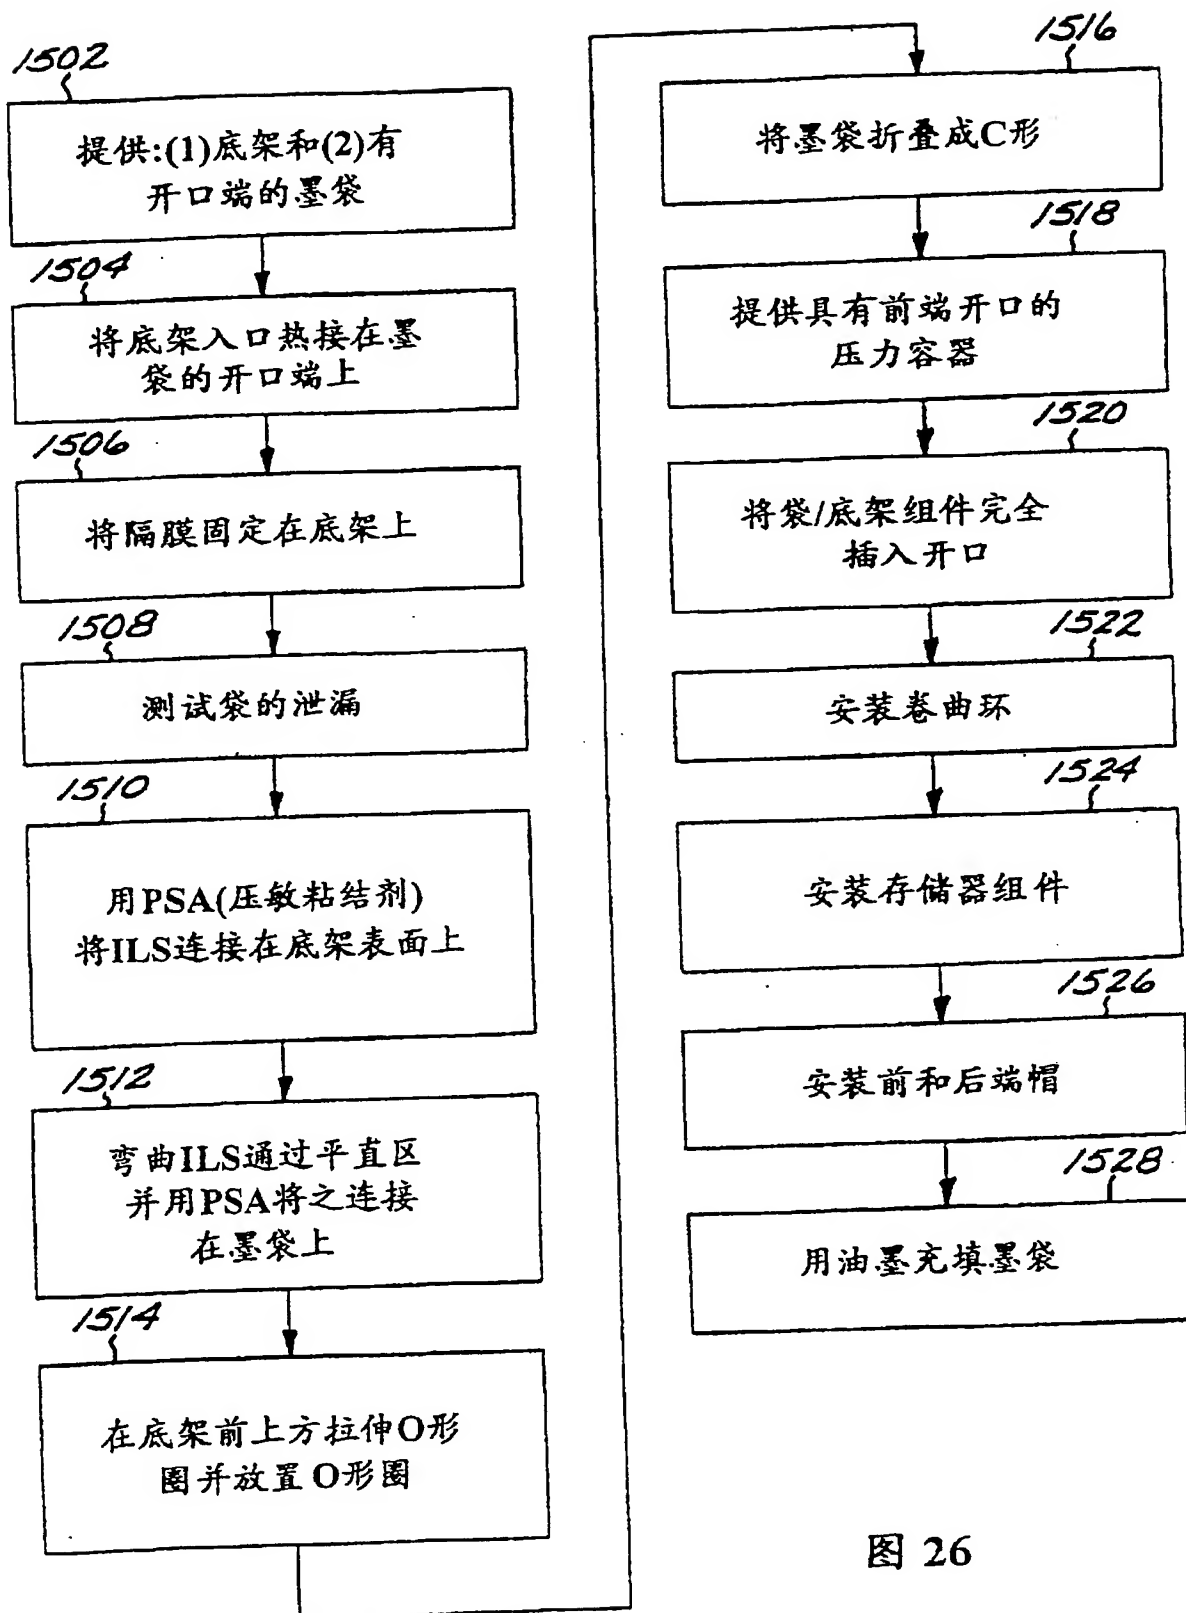 1502
提供:(1)底架和(2)有
开口端的墨袋
1504
将底架入口热接在墨
袋的开口端上
1506
将隔膜固定在底架上
1508
测试袋的泄漏
1510
用PSA(压敏粘结剂)
将ILS连接在底架表面上
1512
弯曲ILS通过平直区
并用PSA将之连接
在墨袋上
1514
在底架前上方拉伸O形
圈并放置O形圈
1516
将墨袋折叠成C形
1518
提供具有前端开口的
压力容器
1520
将袋/底架组件完全
插入开口
1522
安装卷曲环
1524
安装存储器组件
1526
安装前和后端帽
1528
用油墨充填墨袋
图 26